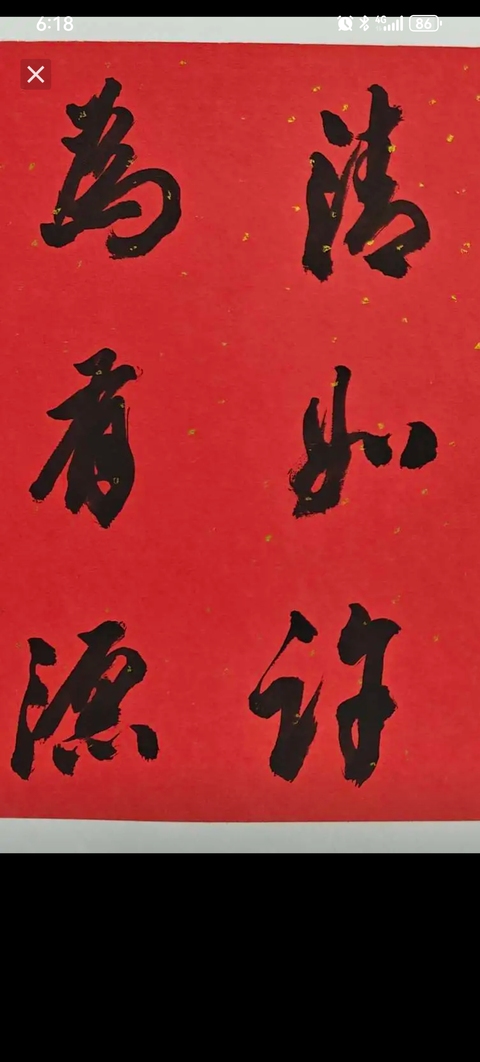 6:18
4G
86
清如許
為有源